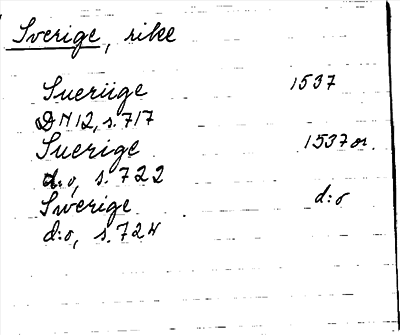 Sverige, rike
Sueriige 1537
DN 12, s. 717
Suerige 1537 or.
d:o, s. 722
Swerige d:o
d:o, s. 724